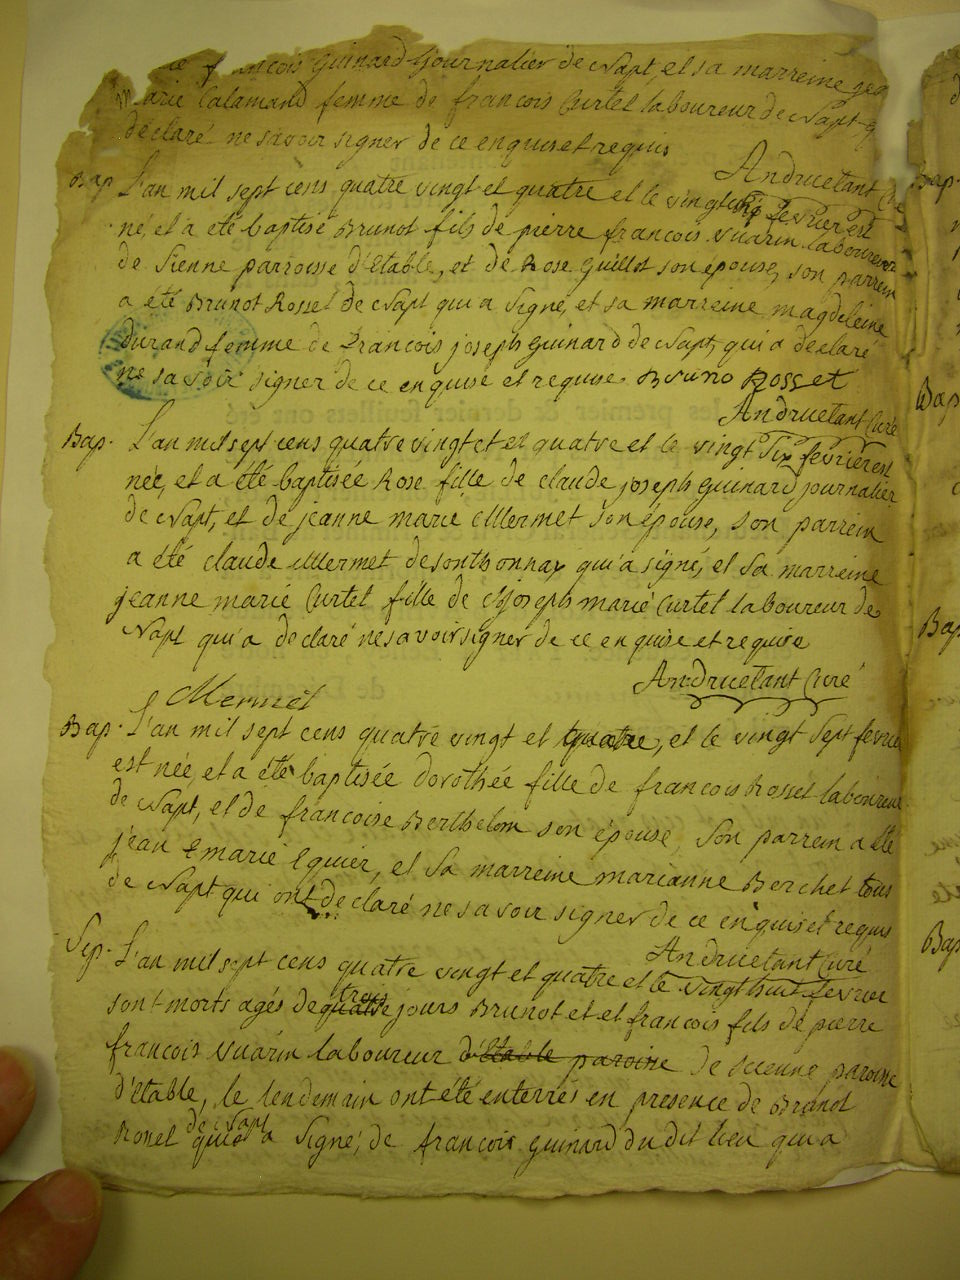 françois guinard journalier de Napt, et sa marreine
marie Calamand femme de françois Curtet laboureur de Napt
déclaré ne savoir signer de ce enquis et requis
Andruetant
Bap. L'an mil sept cens quatre vingt et quatre et le vingt février est
né, et a été baptisé Brunot fils de pierre françois Nuarin laboureur
de Sienne parroisse d'Etable, et de Rose Guillot son épouse, son parrein
a été Brunot Rosset de Napt qui a signé, et sa marreine magdeleine
durand femme de francois joseph guinard de Napt, qui a déclaré
ne savoir signer de ce enquise et requise. Bruno Rosset
Andruetant Curé
Bap. L'an mil sept cens quatre vingt et et quatre et le vingt six février est
née, et a été baptisée Rose fille de claude joseph guinard journalier
de Napt, et de jeanne marie Mermet son épouse, son parrein
a été claude Mermet de sonthonnax qui a signé, et sa marreine
jeanne marie Curtet fille de joseph marie Curtet laboureur de
Napt qui a déclaré ne savoir signer de ce enquise et requise
Andruetant Curé
Mermet
Bap. L'an mil sept cens quatre vingt et quatre, et le vingt sept fevrier
est née, et a été baptisée dorothée fille de francois Rosset laboureur
de Napt, et de francoise Berthelon son épouse, son parrein a été
jean marie Eguier, et sa marreine marianne Berchet tous
de Napt qui ont déclaré ne savoir signer de ce enquis et requis
Andruetant Curé
Sep. L'an mil sept cens quatre vingt et quatre et le vingt huit fevrier
sont morts agés de quatre trois jours Brunot et et françois fils de pierre
françois Nuarin laboureur d'étable paroisse de scienne paroisse
d'Etable, le lendemain ont été enterrés en presence de Brunot
Rosset de Napt qui a signé, de françois guinard du dit lieu qui a